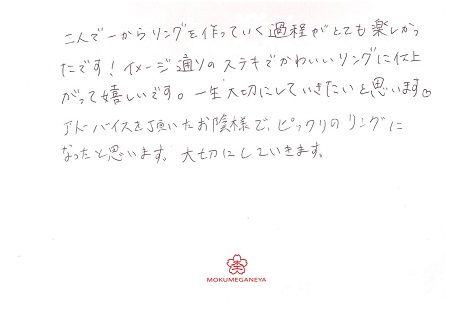 二人で一からリングを作っていく過程がとても楽しかっ
たです！イメージ通りのステキでかわいいリングに仕上
がって嬉しいです。一生大切にしていきたいと思います♡
アドバイスを頂いたお陰様で、ピックリのリングに
なったと思います。大切にしていきます。
MOKUMEGANEYA